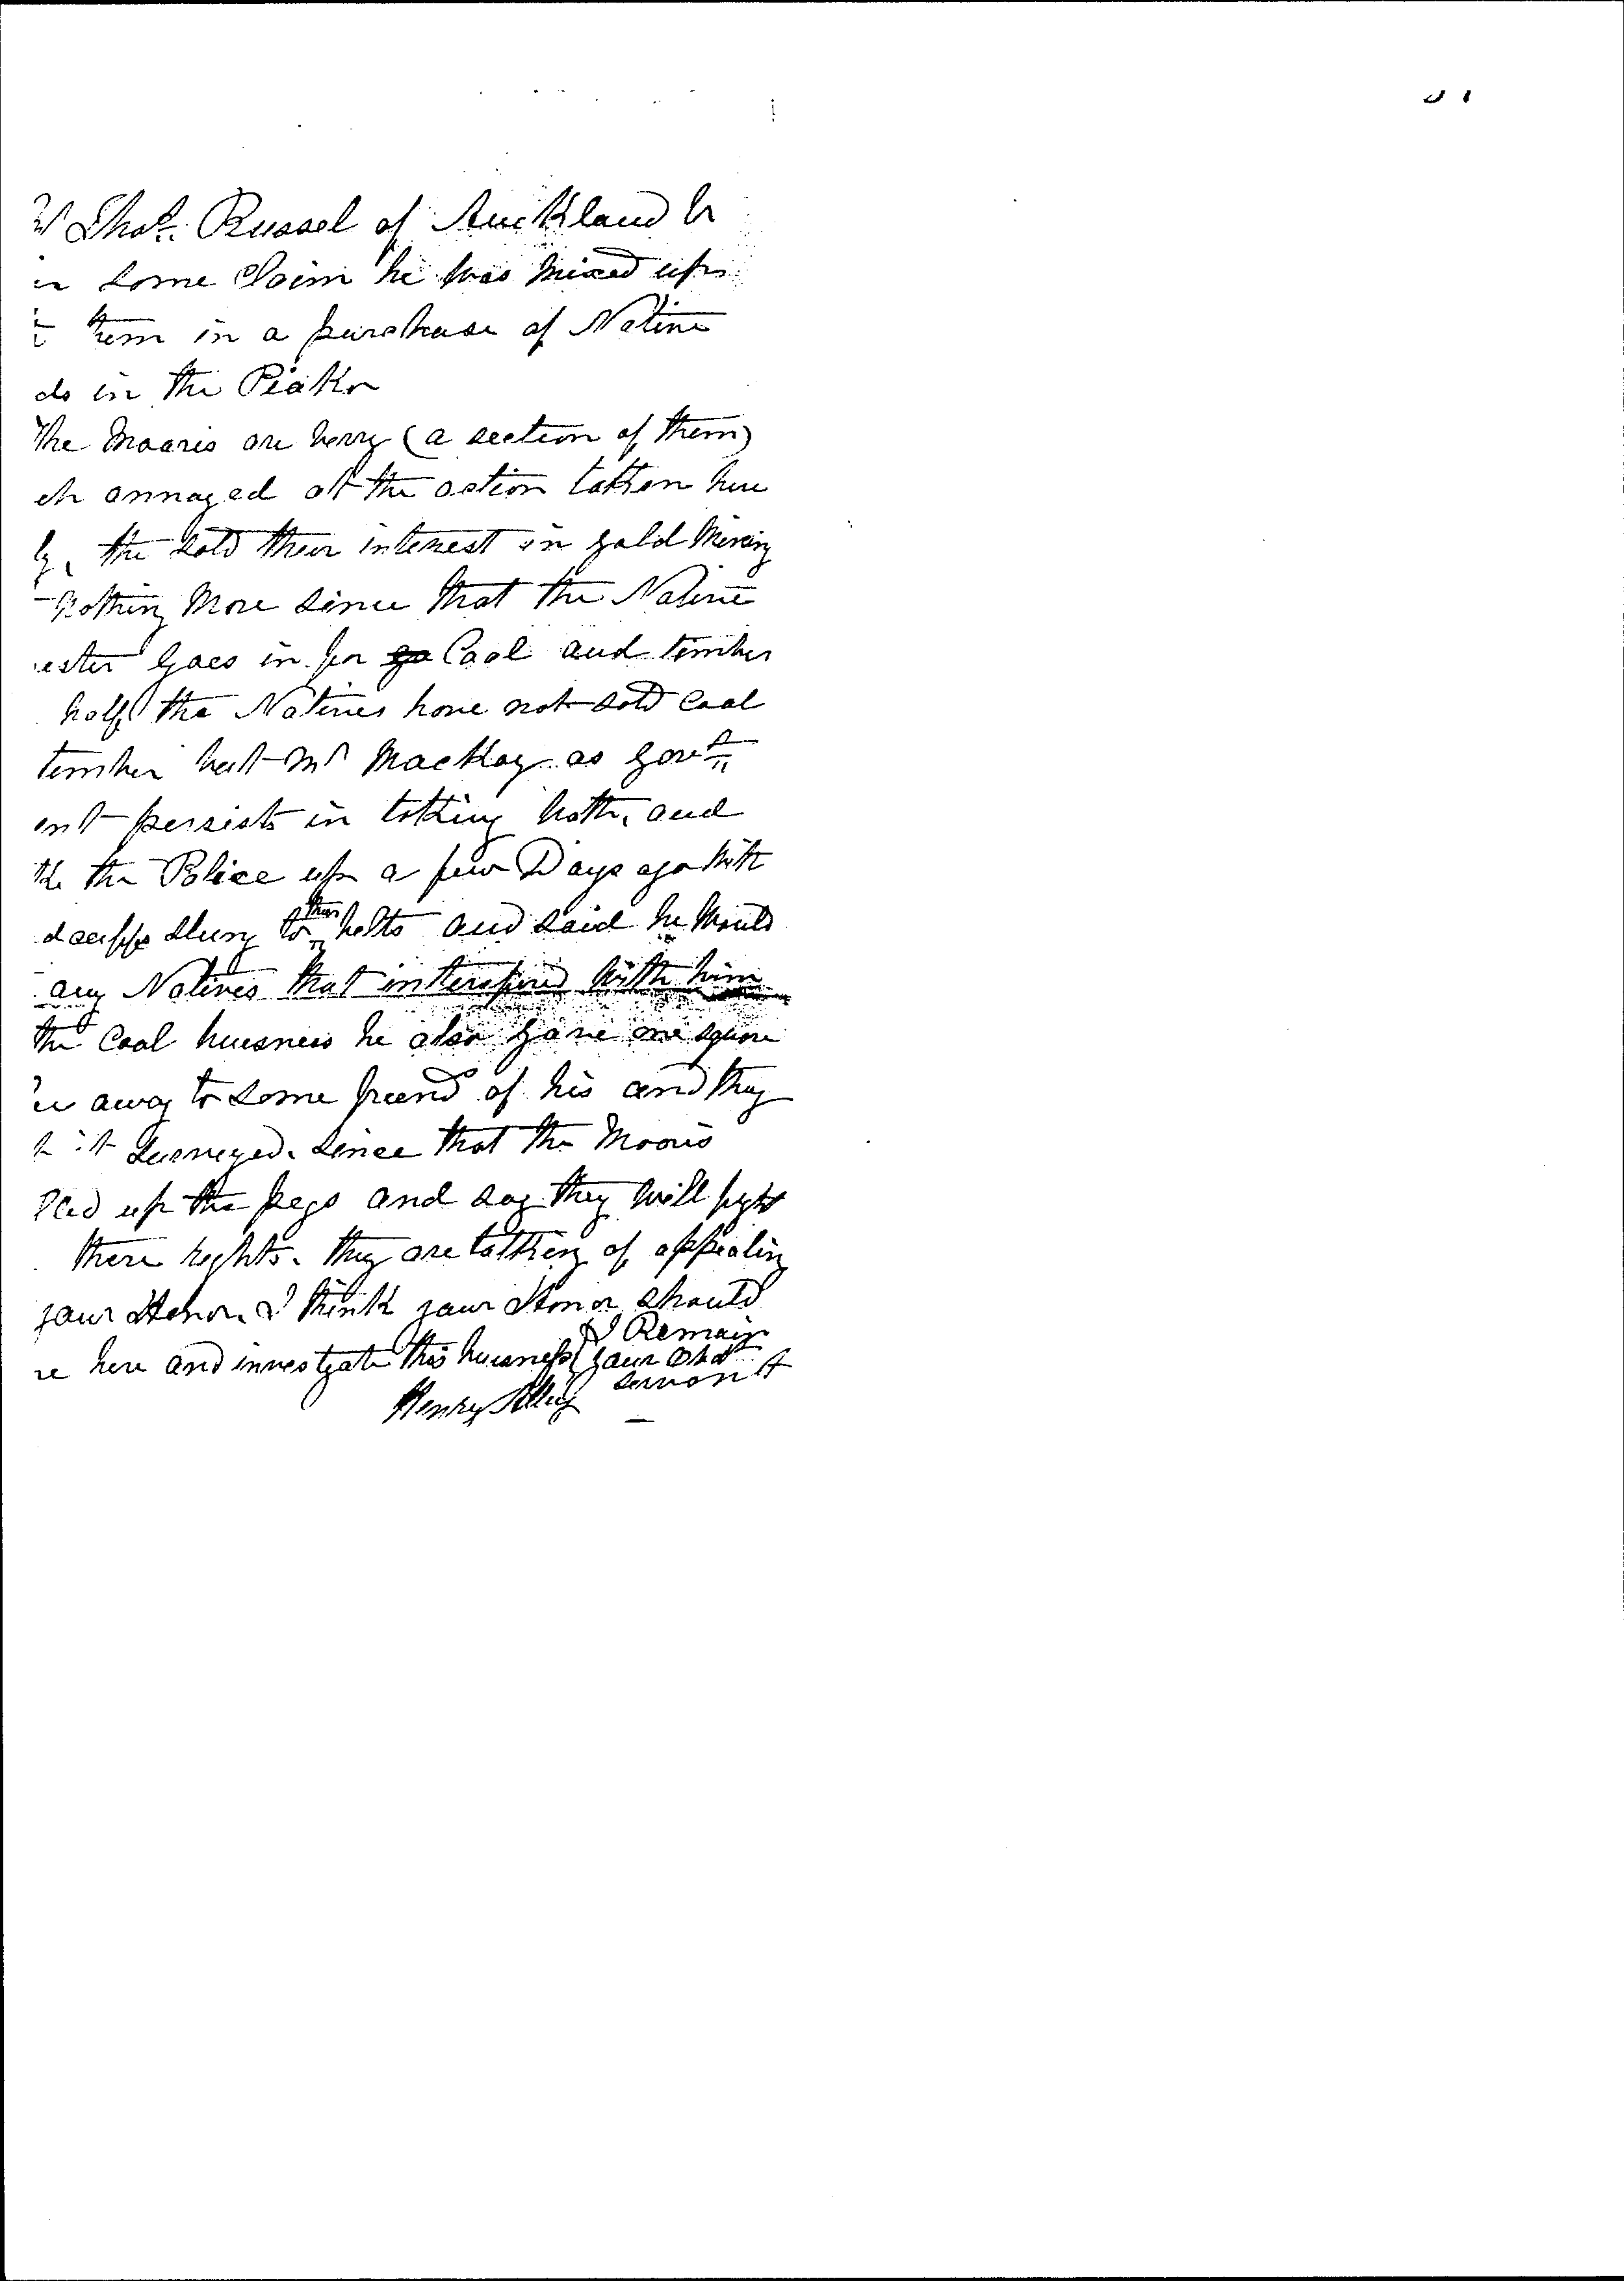 Thos. Russel of Auckland
some Claim he was mixed up
them in a purchase of Native
ds in the Piako
The Maoris are verry (a section of them)
ch annoyed at the action taken here
ly, the sold their interest in gold Mining
Nothing More since that the Native
ester goes in for go Coal and timber
half the Natives have not sold Coal
timber but Mr MacKay as Govt
ent persists in taking both, and
the Police up a few Days ago with
dcuffs slung to their belts and said he would
any Natives that interfered with him
the Coal buisness he also gave one square
le away to some freend of his and they
it Surveyed. Since that the Maoris
lled up the pegs and say they will fight
there rights. they are talking of appealing
your Honor. I think your Honor should
re here and investgate this buisness I Remain
your Obdt
servant
Henry Alley